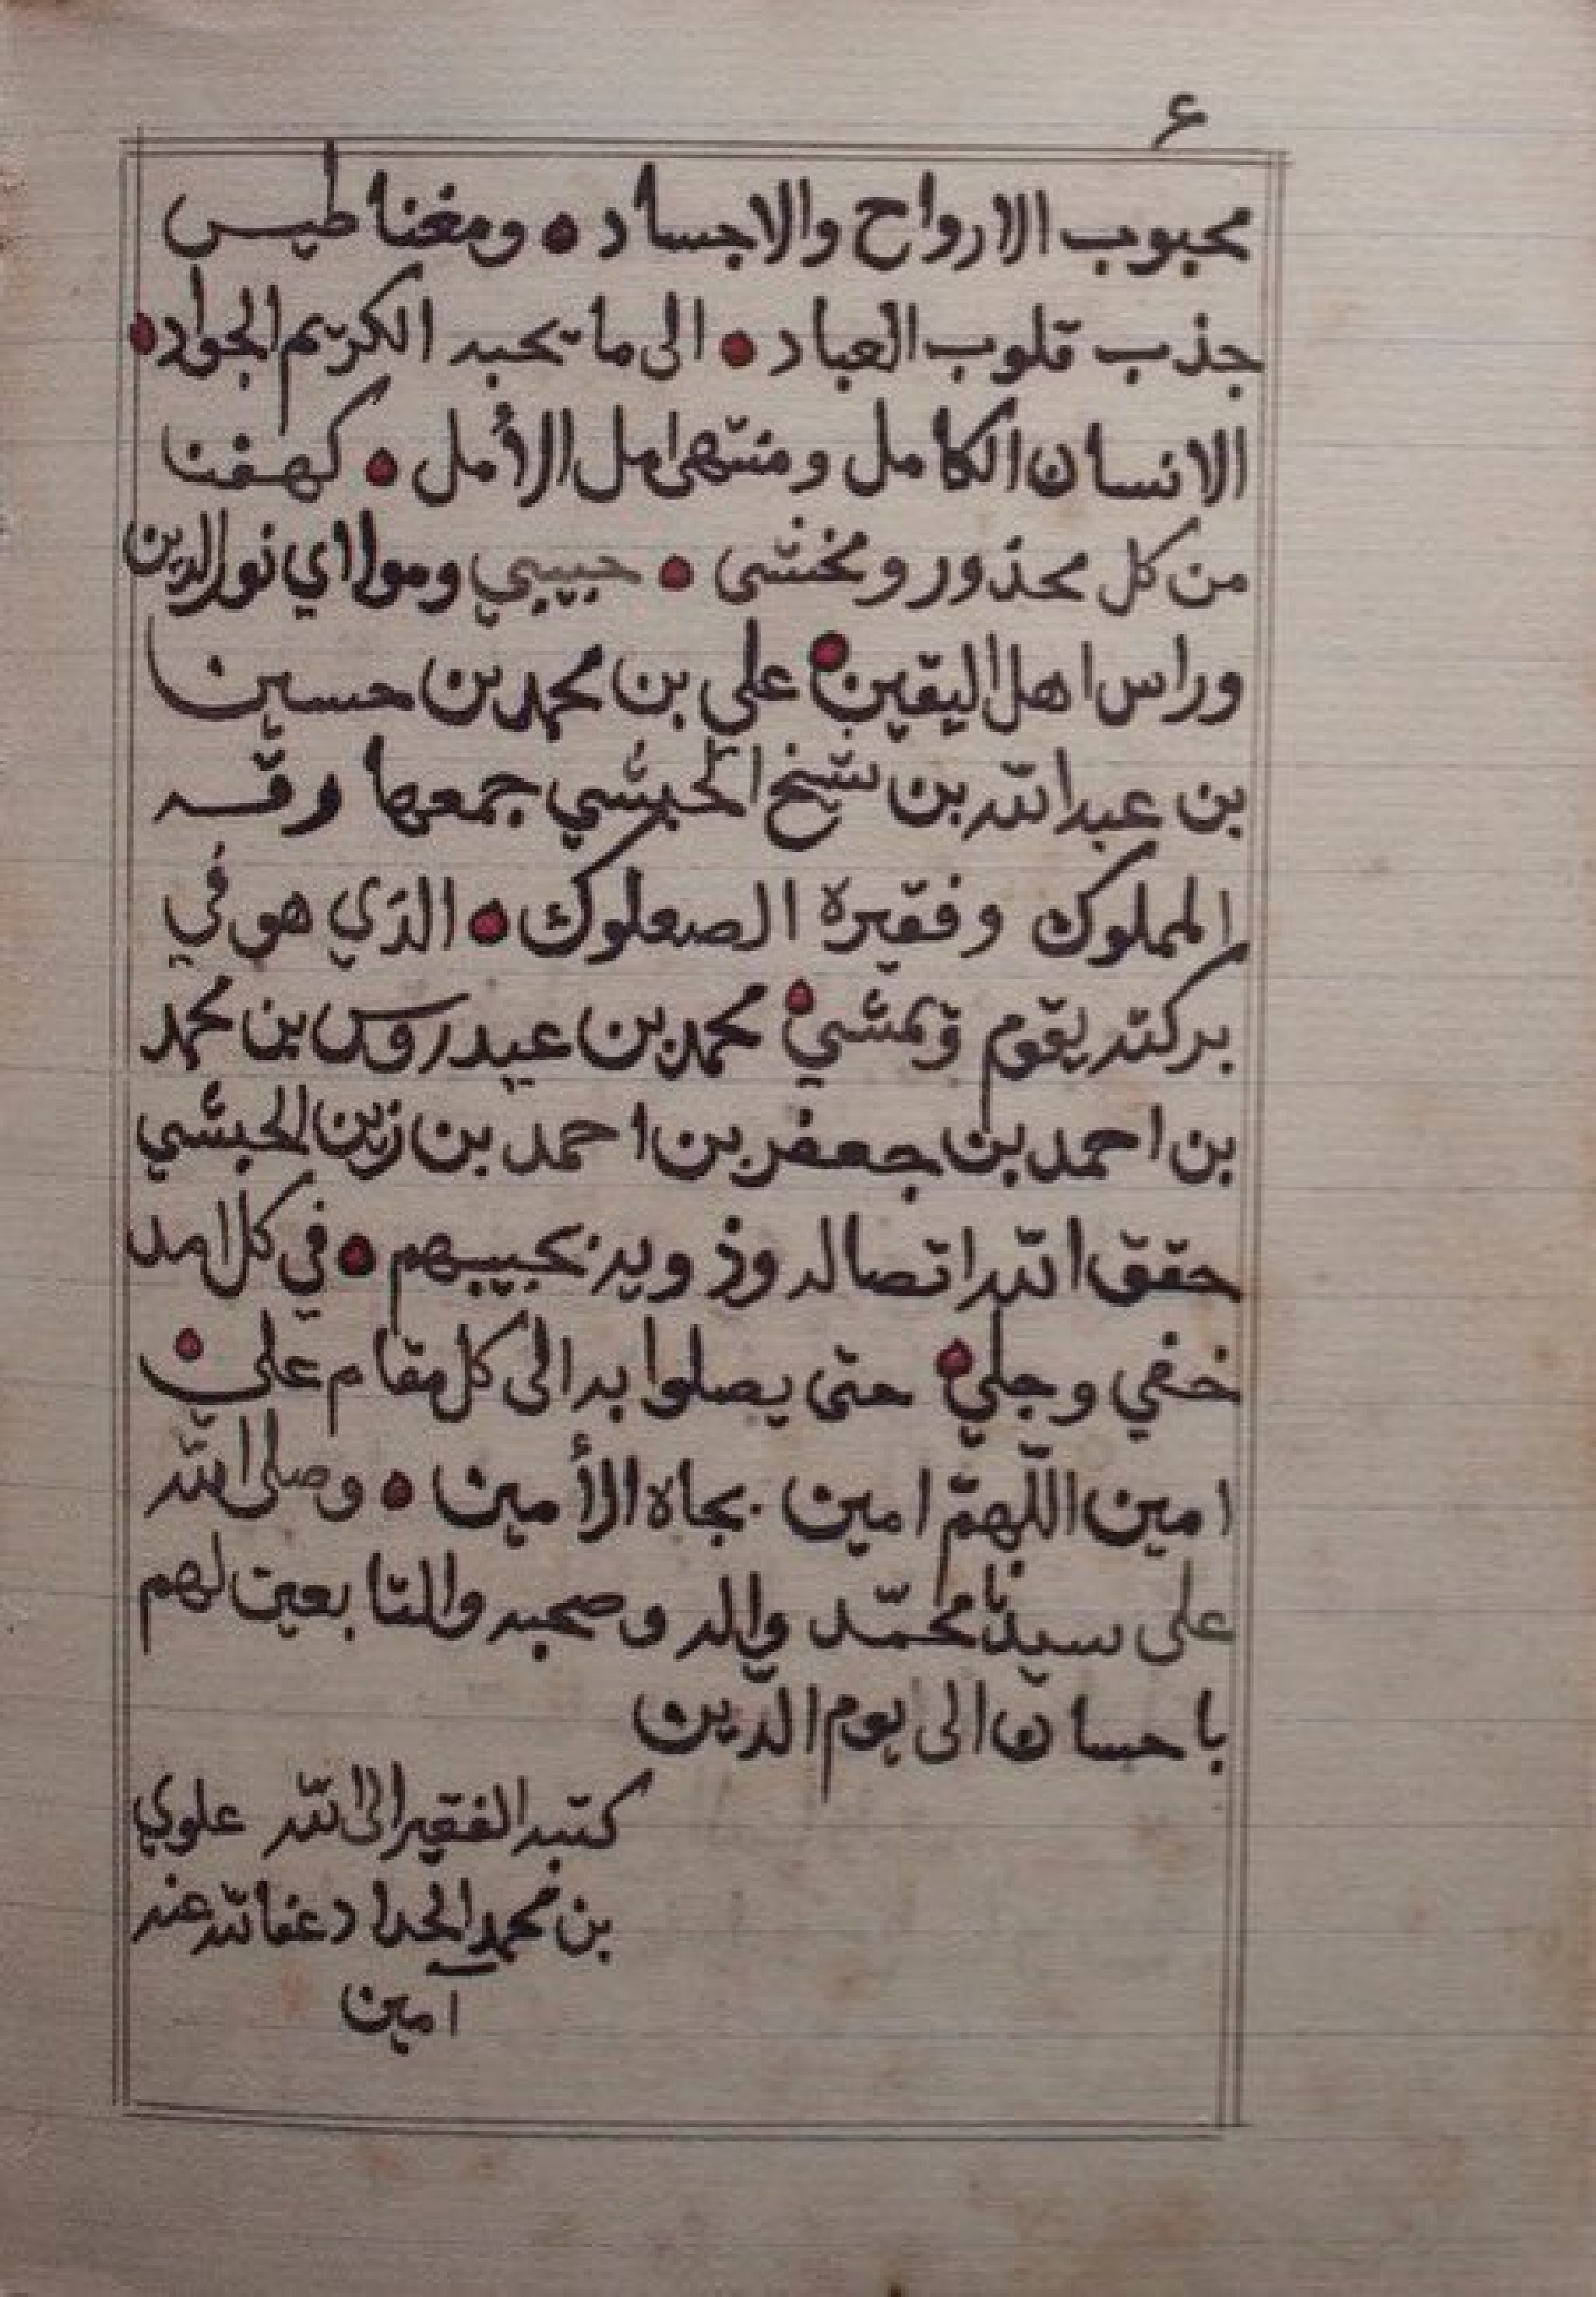 ۶
محبوب الارواح والاجساد ومغناطيس
جذب قلوب العباد الى ما يحبه الكريم الجواد
الانسان الكامل ومنتهى امل الأمل كهفنا
من كل محذور ومخشى حبيبي ومولاي نور الدين
وراس اهل اليقين علي بن محمد بن حسين
بن عبدالله بن شيخ الحبشي جمعها رقه
المملوك وفقيره الصعلوك الذي هو في
بركته يقوم ويمشي محمد بن عيدروس بن محمد
بن احمد بن جعفر بن احمد بن زين الحبشي
حقق الله اتصاله وذويه بحبيبهم في كل امد
خفي وجلي حتى يصلوا به الى كل مقام علي
امين اللّهمّ امين بجاه الأمين وصلى الله
على سيدنا محمّد واله وصحبه والتابعين لهم
باحسان الى يوم الدين
كتبه الفقير الى الله علوي
بن محمد الحداد عفا الله عنه
آمين